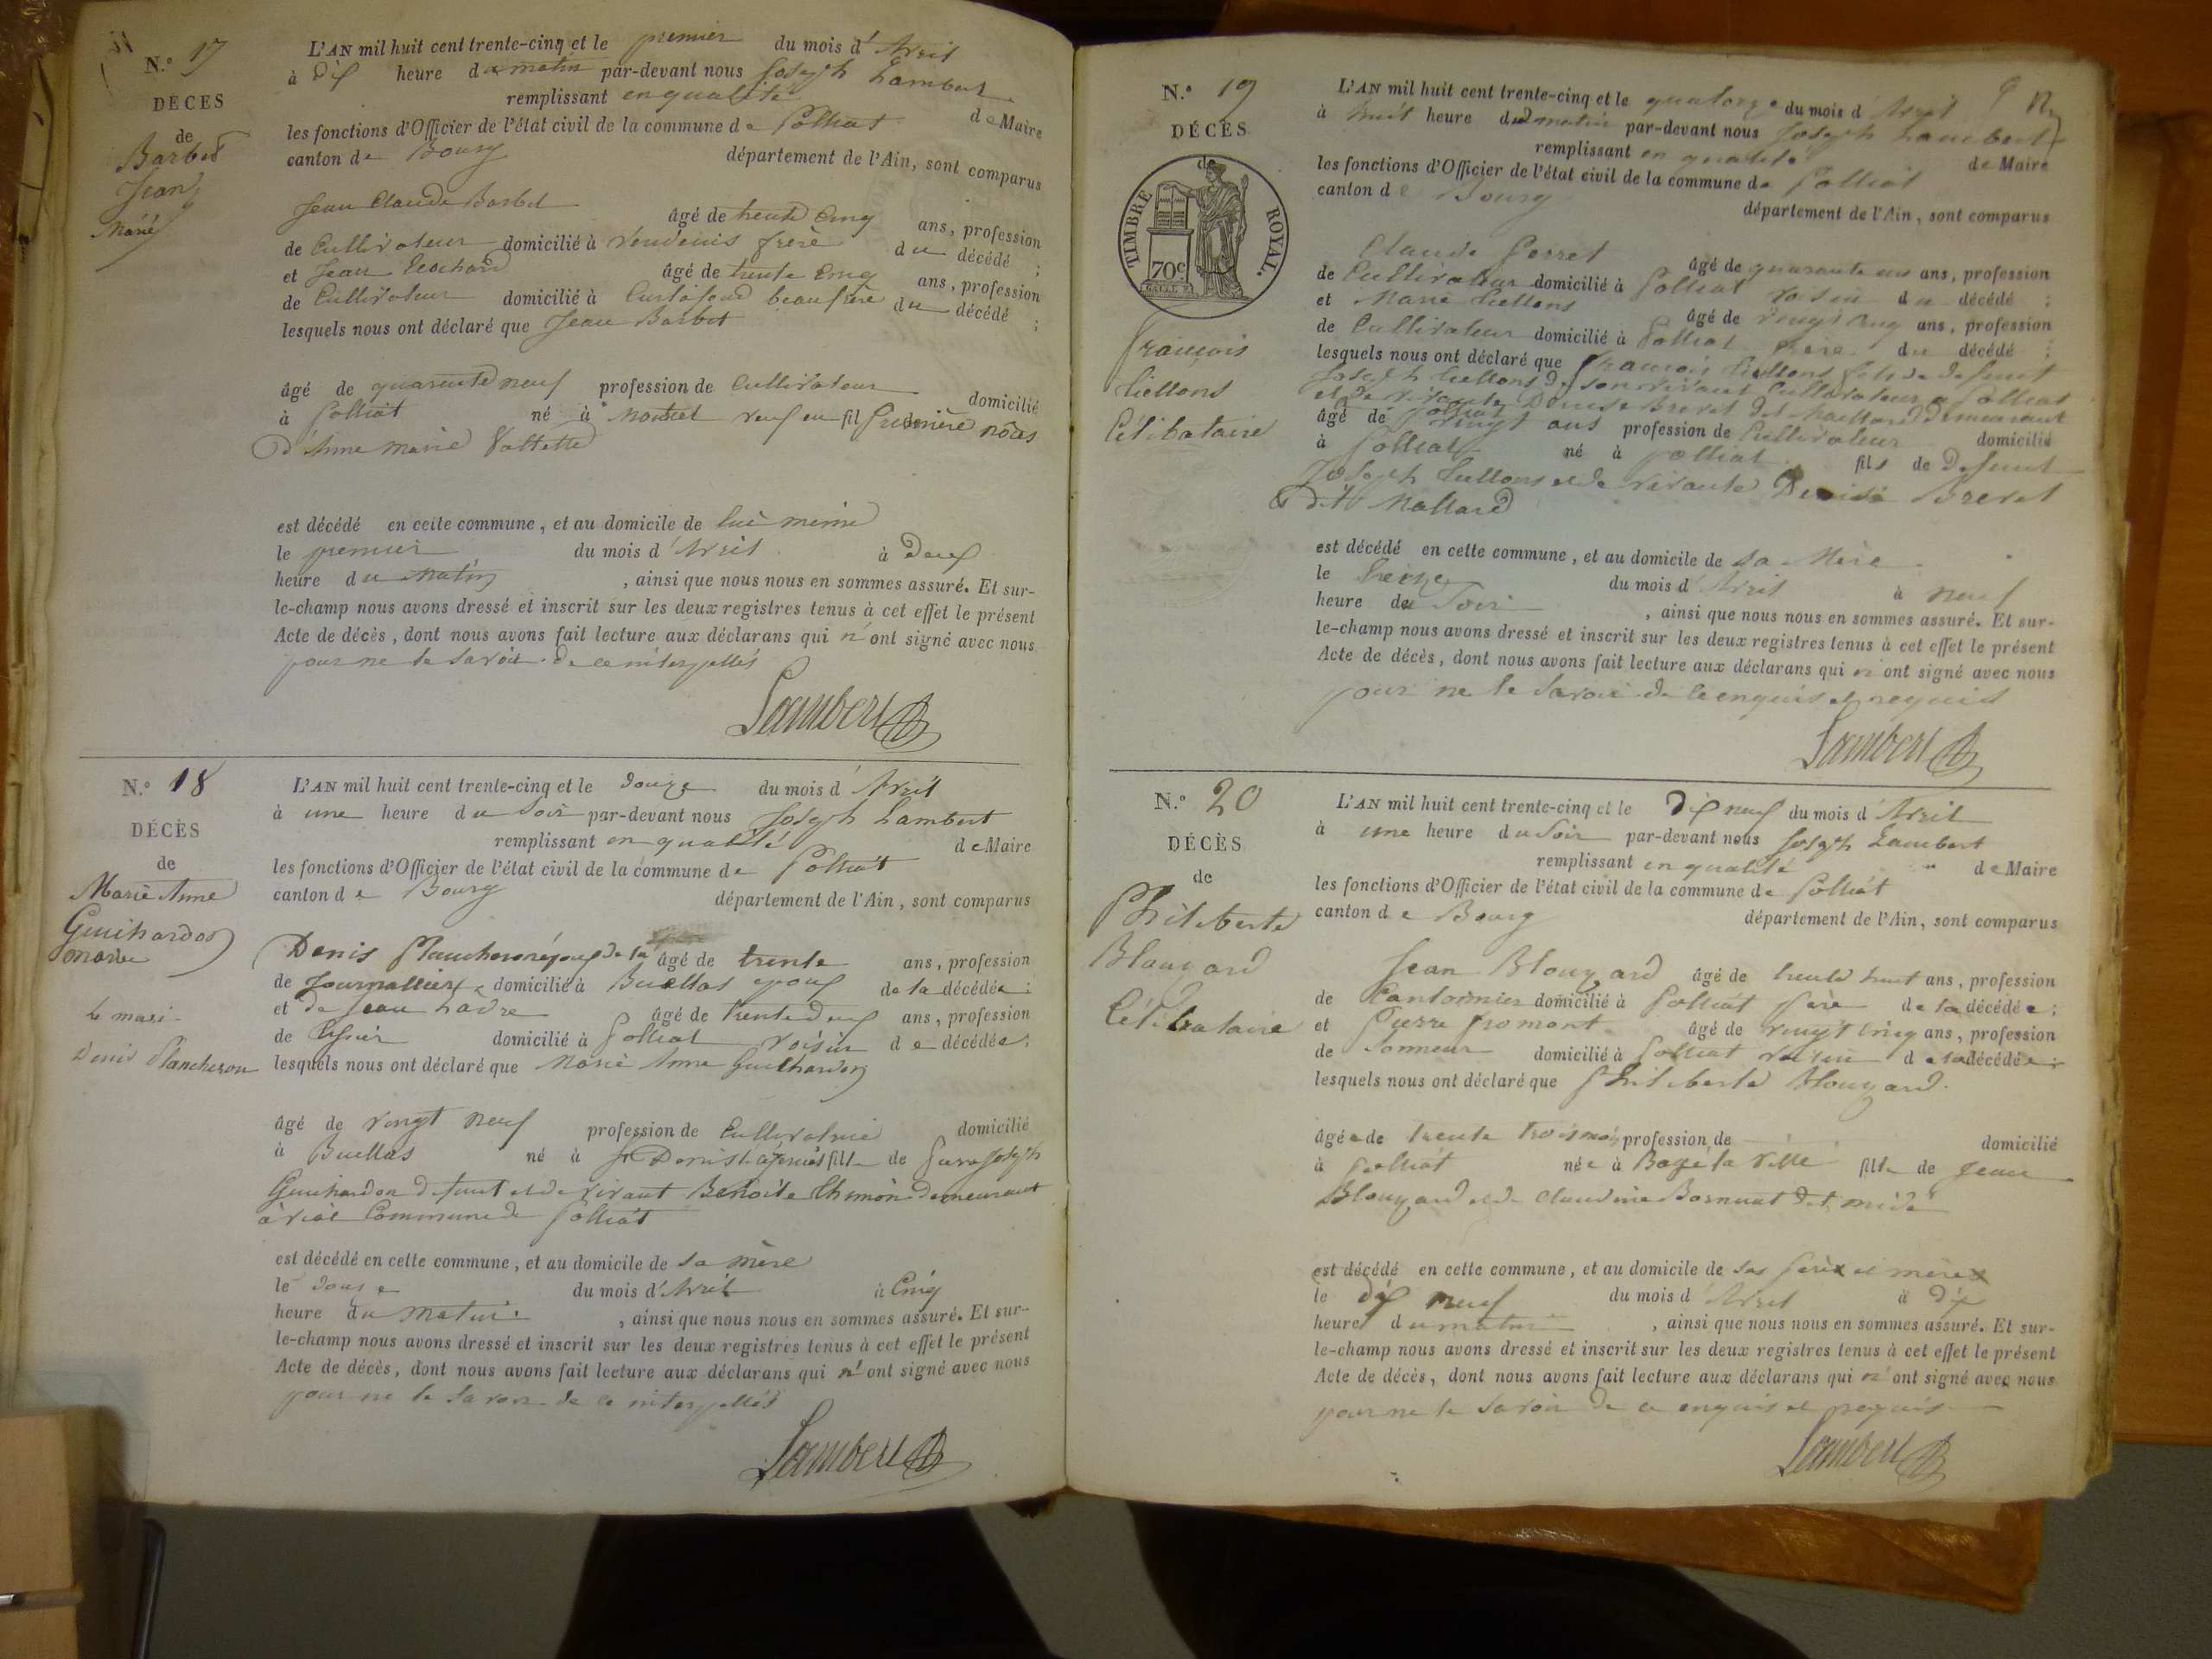 N.º 17
DÉCES
de
Barbet
Jean
Marié
L'AN mil huit cent trente-cinq et le premier du mois d'Avril
à dix heure du matin par-devant nous Joseph Lambert
remplissant en qualité de Maire
les fonctions d'Officier de l'état civil de la commune de Polliat
canton de Bourg département de l'Ain, sont comparus
Jean Claude Barbet âgé de trente cinq ans, profession
de Cultivateur domicilié à Vendeins frère du décédé ;
et Jean âgé de trente cinq ans, profession
de Cultivateur domicilié à Curtafond beaufrère du décédé ;
lesquels nous ont déclaré que Jean Barbet
âgé de quarante neuf profession de Cultivateur domicilié
à Polliat né à Montcet veuf en fil Premiere nôces
d'Anne Marie
est décédé en cette commune, et au domicile de lui même
le premier du mois d'Avril à deux
heure du matin, ainsi que nous nous en sommes assuré. Et sur-
le-champ nous avons dressé et inscrit sur les deux registres tenus à cet effet le présent
Acte de décès, dont nous avons fait lecture aux déclarans qui n'ont signé avec nous
pour ne le savoir de ce interpellés
Lambert
N.º 18
DÉCÈS
de
Marie Anne
Guichardon
mariée
le mari
Denis Plancheron
L'AN mil huit cent trente-cinq et le douze du mois d'Avril
à une heure du soir par-devant nous Joseph Lambert
remplissant en qualité de Maire
les fonctions d'Officier de l'état civil de la commune de Polliat
canton de Bourg département de l'Ain, sont comparus
Denis Plancheron époux de la âgé de trente ans, profession
de Journallier domicilié à Buellas epoux de la décédée ;
et de Jean Ladre âgé de trente deux ans, profession
de domicilié à Polliat voisin de décédée ;
lesquels nous ont déclaré que Marie Anne Guichardon
âgé de vingt neuf profession de Cultivatrice domicilié
à Buellas né à St Denis fille de Joseph
Guichardon defunt et de vivant Benoite demeurant
à Commune de Polliat
est décédé en cette commune, et au domicile de sa mère
le douze du mois d'Avril à Cinq
heure du matin, ainsi que nous nous en sommes assuré. Et sur-
le-champ nous avons dressé et inscrit sur les deux registres tenus à cet effet le présent
Acte de décès, dont nous avons fait lecture aux déclarans qui n'ont signé avec nous
pour ne le savoir de ce interpellés
Lambert
N.º 19
DÉCÈS
de
TIMBRE ROYAL.
70c
François
Tiellons
Célibataire
L'AN mil huit cent trente-cinq et le quatorze du mois d'Avril
à huit heure du matin par-devant nous Joseph Lambert
remplissant en qualité de Maire
les fonctions d'Officier de l'état civil de la commune de Polliat
canton de Bourg département de l'Ain, sont comparus
Claude Perret âgé de quarante un ans, profession
de Cultivateur domicilié à Polliat voisin du décédé ;
et Marie âgé de vingt cinq ans, profession
de Cultivateur domicilié à Polliat frère du décédé ;
lesquels nous ont déclaré que François fils de defunt
Joseph de son vivant Cultivateur à Polliat
et de vivante Denise Brevet dit Maillard demeurant
âgé de Polliat vingt ans profession de Cultivateur domicilié
à Polliat né à Polliat fils de Defunt
Joseph et de vivante Denise Brevet
dit Mallard
est décédé en cette commune, et au domicile de sa Mère
le treize du mois d'Avril à neuf
heure du Soir, ainsi que nous nous en sommes assuré. Et sur-
le-champ nous avons dressé et inscrit sur les deux registres tenus à cet effet le présent
Acte de décès, dont nous avons fait lecture aux déclarans qui n'ont signé avec nous
pour ne le savoir de ce enquis et requis
Lambert
N.º 20
DÉCÈS
de
Philiberte
Blouzard
Célibataire
L'AN mil huit cent trente-cinq et le Dix neuf du mois d'Avril
à une heure du Soir par-devant nous Joseph Lambert
remplissant en qualité de Maire
les fonctions d'Officier de l'état civil de la commune de Polliat
canton de Bourg département de l'Ain, sont comparus
Jean Blouzard âgé de trente huit ans, profession
de Cantonnier domicilié à Polliat père de la décédée ;
et Pierre fromont âgé de vingt cinq ans, profession
de Sonneur domicilié à Polliat voisin de la décédée ;
lesquels nous ont déclaré que Philiberte Blouzard
âgée de trente trois mois profession de domicilié
à Polliat née à Bagé la Ville fille de Jean
Blouzard et de Claudine
est décédé en cette commune, et au domicile de ses père et mère
le dix neuf du mois d'Avril à dix
heure du matin, ainsi que nous nous en sommes assuré. Et sur-
le-champ nous avons dressé et inscrit sur les deux registres tenus à cet effet le présent
Acte de décès, dont nous avons fait lecture aux déclarans qui n'ont signé avec nous
pour ne le savoir de ce enquis et requis
Lambert